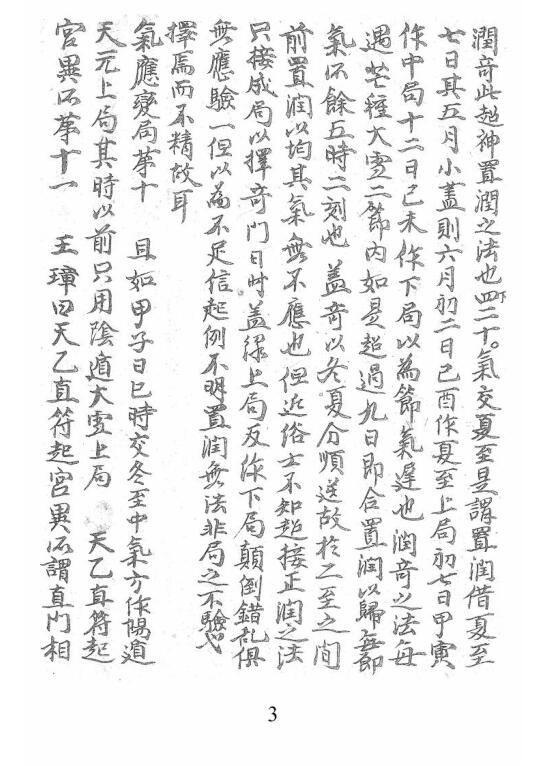 潤竒此超神置潤之法也四二十。氣交夏至是謂置潤借夏至
七日其五月小盖則六月初二日己酉作夏至上局初七日甲寅
作中局十二日己未作下局以為節氣遲也潤竒之法每
遇芒種大雪二節內如是超過九日即合置潤以歸每節
氣所餘五時二刻也 盖竒以冬夏分順逆故於二至之間
前置潤以均其氣無不應也但近俗士不知超接正潤之法
只接成局以擇竒門日时盖緣上局反作下局顛倒錯乱俱
無應驗一但以為不足信起例不明置潤無法非局之不驗也
擇焉而不精故耳
氣應變局第十 且如甲子日巳時交冬至中氣方作陽遁
天元上局其時以前只用陰遁大雪上局 天乙直符起
宮異所第十一 王璋曰天乙直符起宮異所謂直門相
3